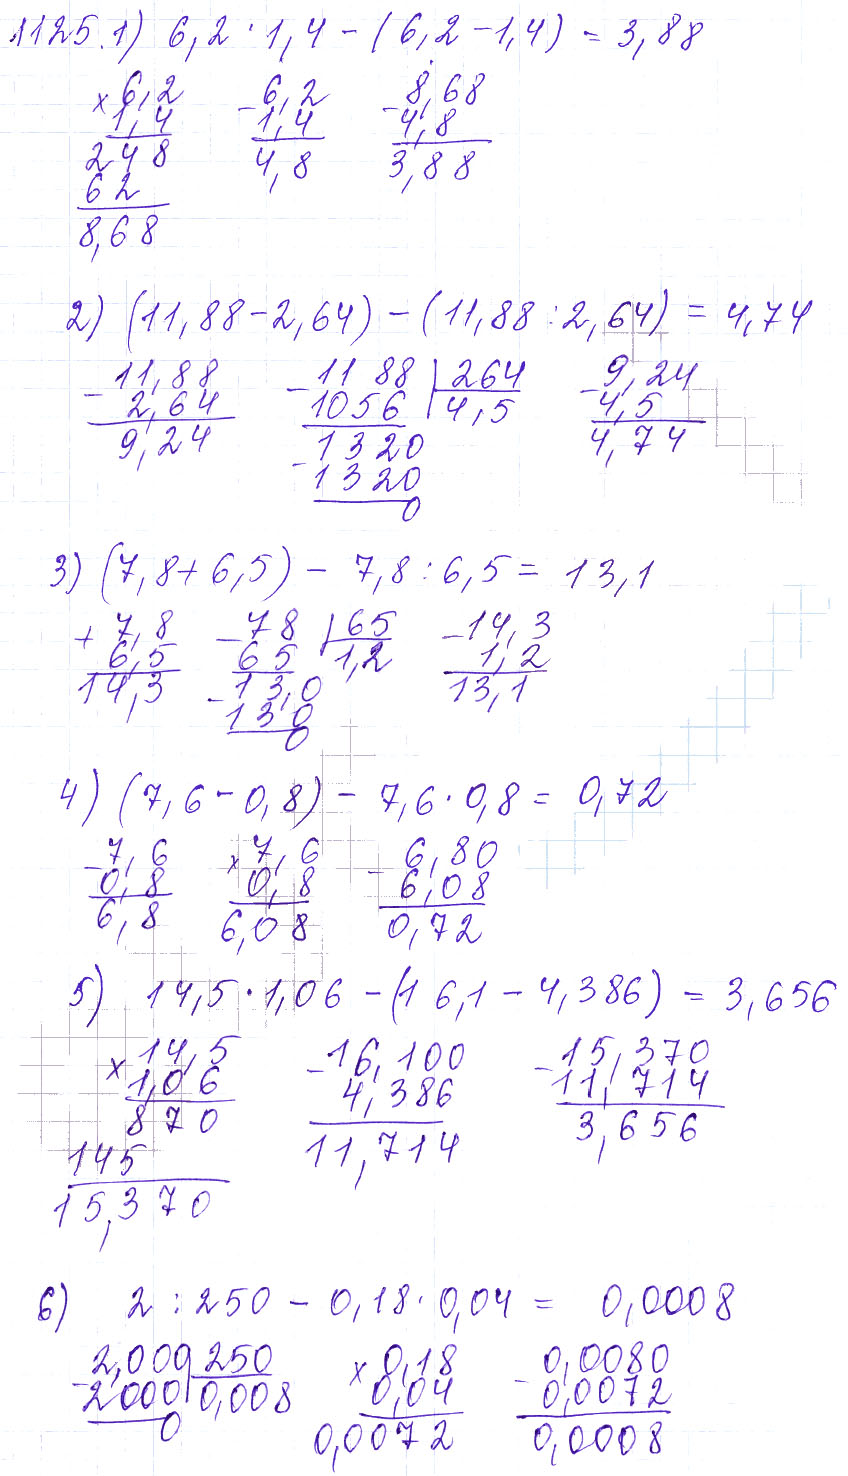 1125. 1) 6,2 · 1,4 − (6,2 − 1,4) = 3,88
× 6,2 − 6,2 − 8,68
1,4 1,4 4,8
248 4,8 3,88
62
8,68
2) (11,88 − 2,64) − (11,88 : 2,64) = 4,74
− 11,88 − 1188 | 264 − 9,24
2,64 1056 4,5 4,5
9,24 1320 4,74
− 1320
0
3) (7,8 + 6,5) − 7,8 : 6,5 = 13,1
+ 7,8 − 78 | 65 − 14,3
6,5 65 1,2 1,2
14,3 − 13,0 13,1
130
0
4) (7,6 − 0,8) − 7,6 · 0,8 = 0,72
− 7,6 × 7,6 − 6,80
0,8 0,8 6,08
6,8 6,08 0,72
5) 14,5 · 1,06 − (16,1 − 4,386) = 3,656
× 14,5 − 16,100 − 15,370
1,06 4,386 11,714
870 11,714 3,656
145
15,370
6) 2 : 250 − 0,18 · 0,04 = 0,0008
− 2,000 | 250 × 0,18 − 0,0080
2000 0,008 0,04 0,0072
0 0,0072 0,0008